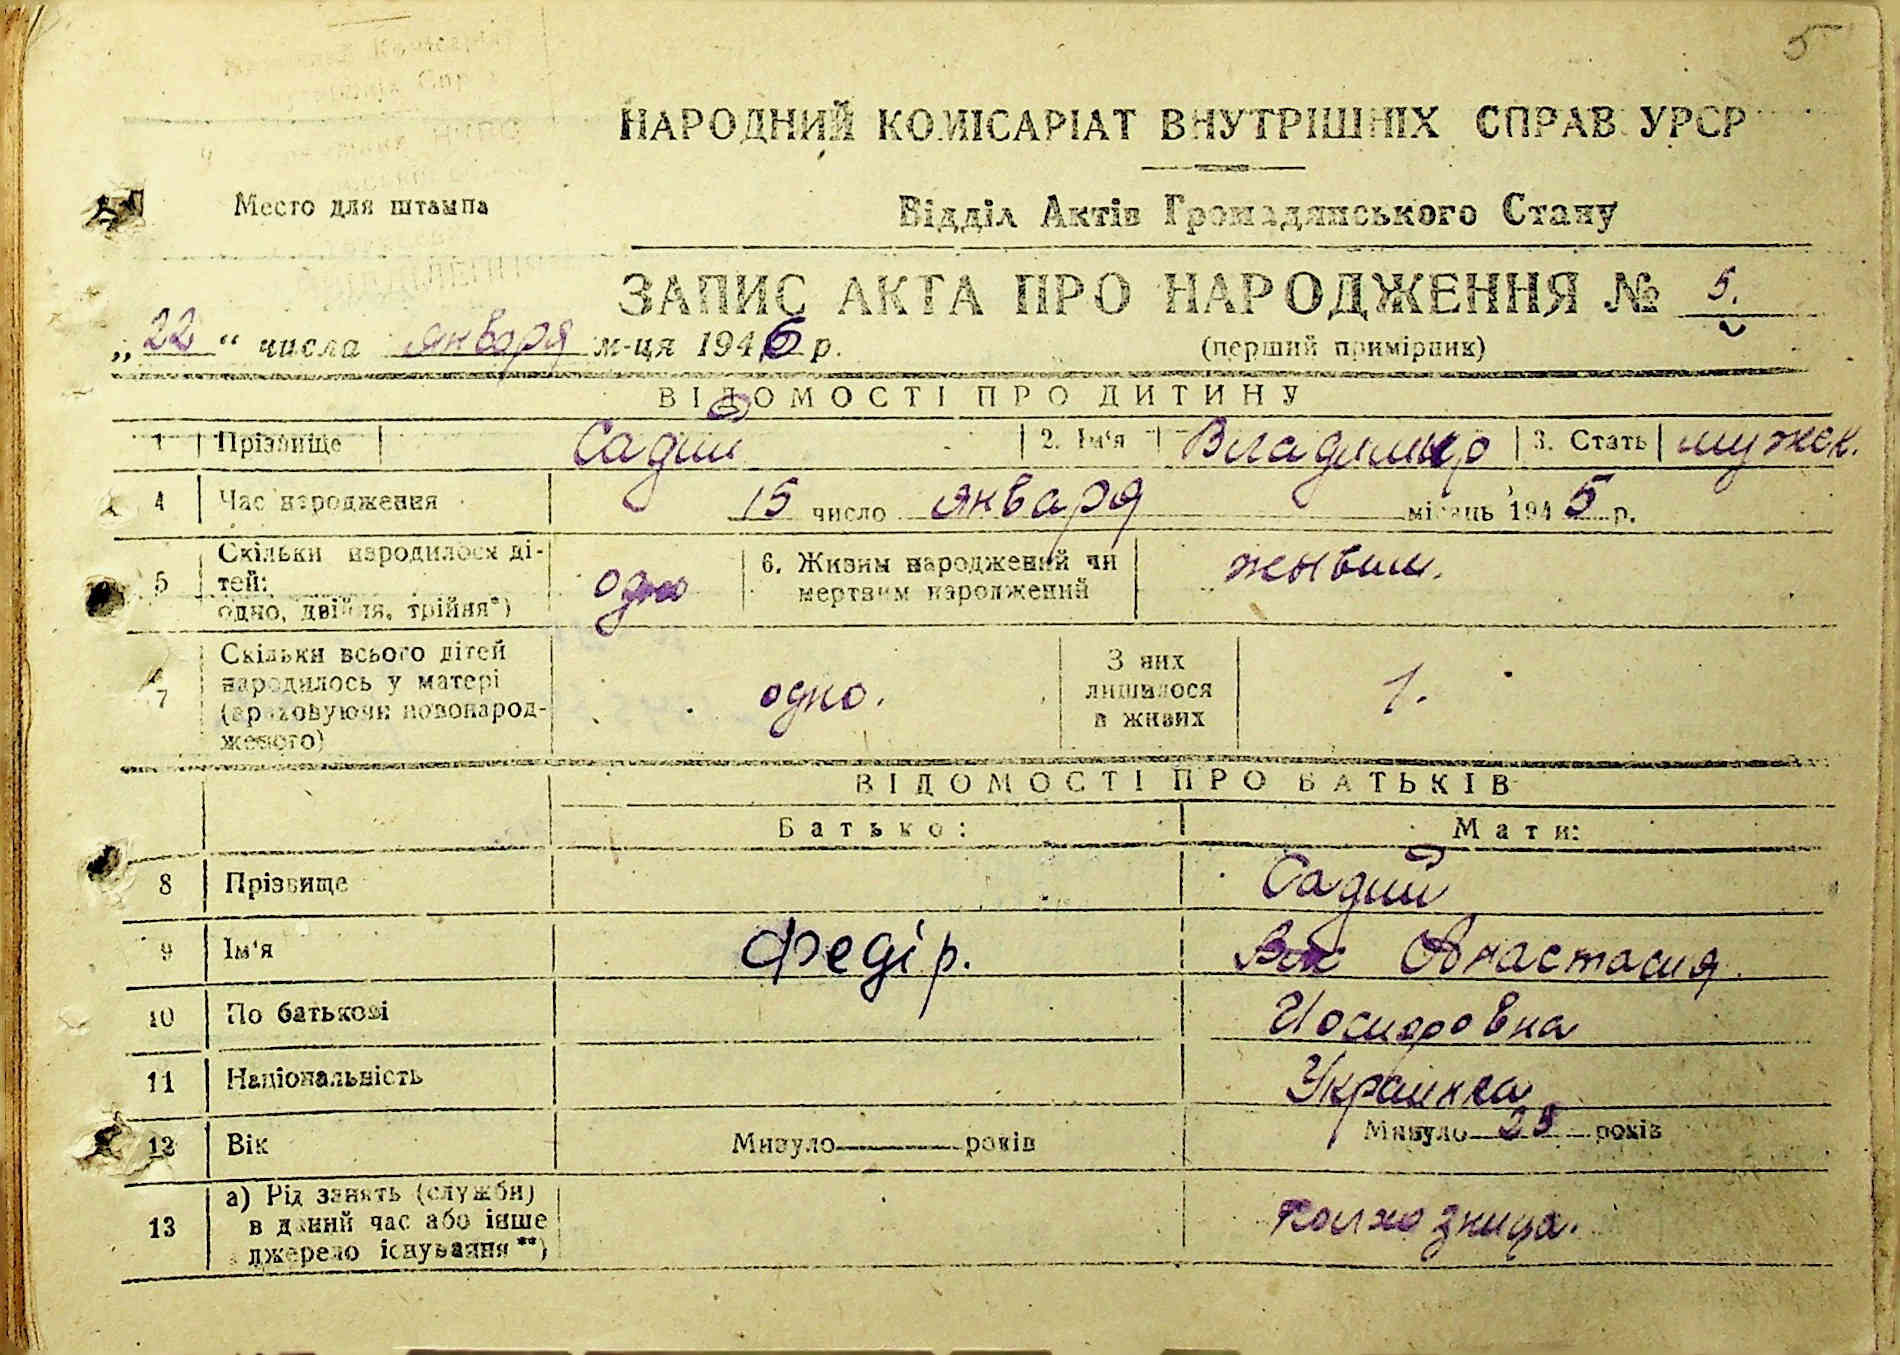 5
НАРОДНИЙ КОМІСАРІАТ ВНУТРІШНІХ СПРАВ УРСР
Место для штампа
Відділ Актів Громадянського Стану
ЗАПИС АКТА ПРО НАРОДЖЕННЯ № 5.
„22“ числа января м-ця 1946 р.
(перший примірник)
ВІДОМОСТІ ПРО ДИТИНУ
1 Прізвище Садий 2. Ім'я Владимир 3. Стать мужск.
4 Час народження 15 число января місяць 1945 р.
5 Скільки народилося ді-
тей:
одно, двійня, трійня*) одно
6. Живим народжений чи
мертвим народжений живым.
7 Скільки всього дітей
народилось у матері
(враховуючи новонарод-
женого) одно.
З них
лишилося
в живих 1.
ВІДОМОСТІ ПРО БАТЬКІВ
Батько: Мати:
8 Прізвище Садий
9 Ім'я Федір. Анастасия.
10 По батькові Иосифовна
11 Національність Украинка
12 Вік Минуло років Минуло 25 років
13 а) Рід занять (служби)
в даний час або інше
джерело існування**) колхозница.